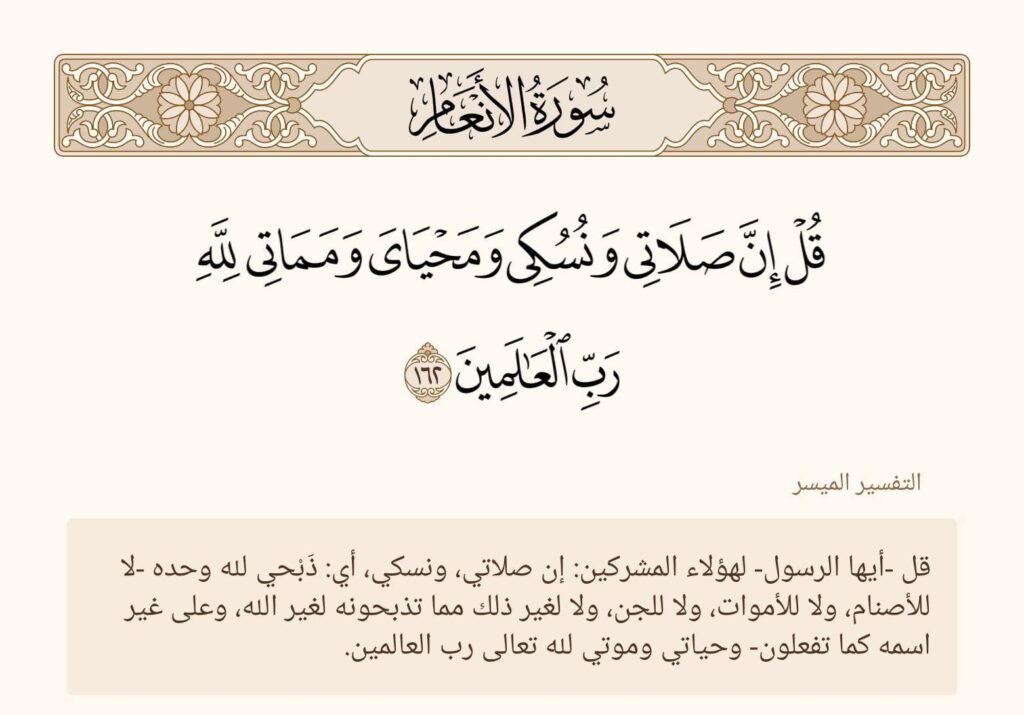 سُورَةُ الأَنْعَامِ
قُلْ إِنَّ صَلَاتِى وَنُسُكِى وَمَحْيَاىَ وَمَمَاتِى لِلَّهِ
رَبِّ ٱلْعَـٰلَمِينَ ١٦٢
التفسير الميسر
قل -أيها الرسول- لهؤلاء المشركين: إن صلاتي، ونسكي، أي: ذَبْحي لله وحده -لا
للأصنام، ولا للأموات، ولا للجن، ولا لغير ذلك مما تذبحونه لغير الله، وعلى غير
اسمه كما تفعلون- وحياتي وموتي لله تعالى رب العالمين.